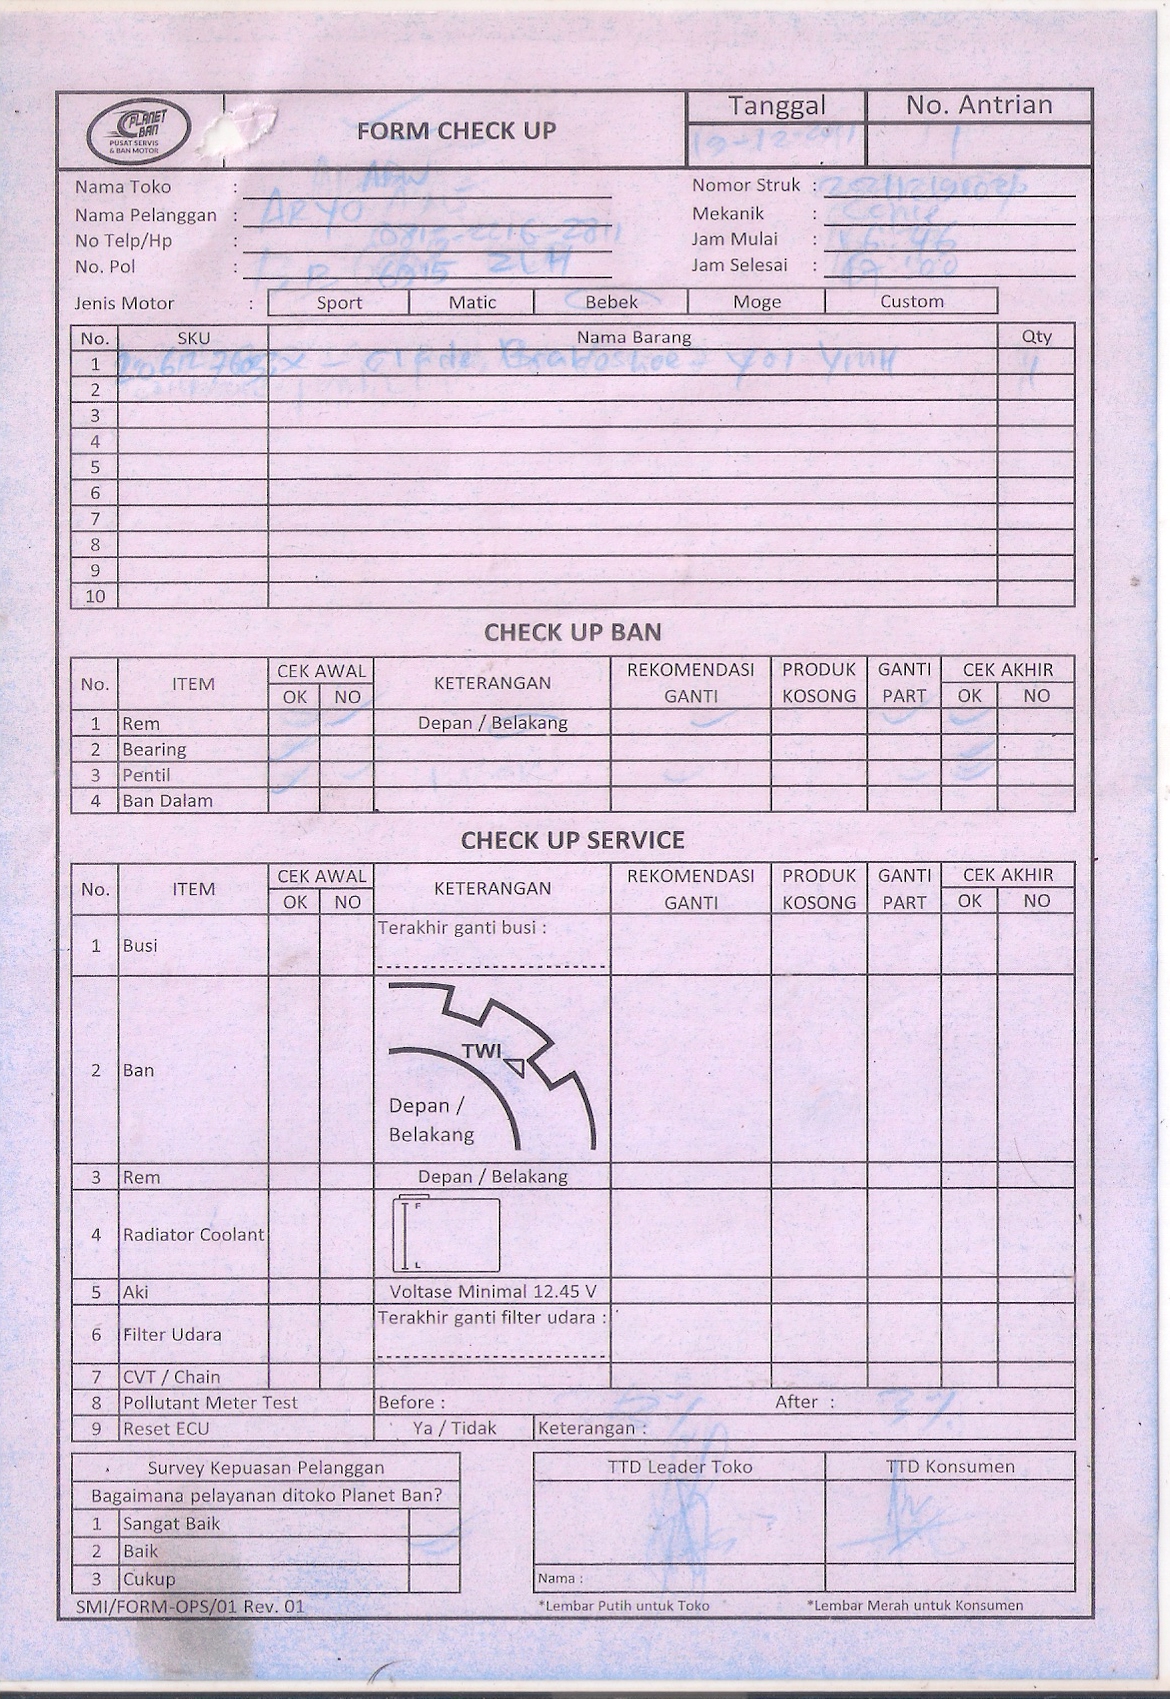 PLANET BAN
PUSAT SERVIS & BAN MOTOR
FORM CHECK UP
Tanggal No. Antrian
1
Nama Toko :
Nama Pelanggan : ARYO
No Telp/Hp :
No. Pol :
Nomor Struk :
Mekanik :
Jam Mulai :
Jam Selesai :
Jenis Motor : Sport Matic Bebek Moge Custom
No. SKU Nama Barang Qty
1
2
3
4
5
6
7
8
9
10
CHECK UP BAN
No. ITEM CEK AWAL OK NO KETERANGAN REKOMENDASI GANTI PRODUK KOSONG GANTI PART CEK AKHIR OK NO
1 Rem Depan / Belakang
2 Bearing
3 Pentil
4 Ban Dalam
CHECK UP SERVICE
No. ITEM CEK AWAL OK NO KETERANGAN REKOMENDASI GANTI PRODUK KOSONG GANTI PART CEK AKHIR OK NO
1 Busi Terakhir ganti busi :
2 Ban TWI Depan / Belakang
3 Rem Depan / Belakang
4 Radiator Coolant F L
5 Aki Voltase Minimal 12.45 V
6 Filter Udara Terakhir ganti filter udara :
7 CVT / Chain
8 Pollutant Meter Test Before : After :
9 Reset ECU Ya / Tidak Keterangan :
Survey Kepuasan Pelanggan
Bagaimana pelayanan ditoko Planet Ban?
1 Sangat Baik
2 Baik
3 Cukup
TTD Leader Toko TTD Konsumen
Nama :
SMI/FORM-OPS/01 Rev. 01
*Lembar Putih untuk Toko *Lembar Merah untuk Konsumen